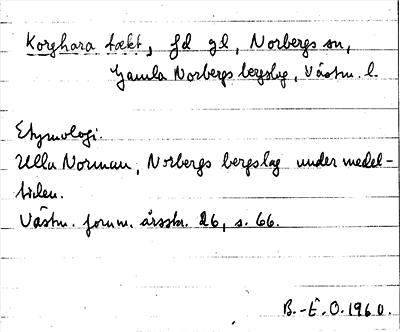 Korghara tækt, fd gl, Norbergs sn,
Gamla Norbergs bergslag, Västm. l.
Etymologi.
Ulla Norman, Norbergs bergslag under medel-
tiden.
Västm. fornm. årsskr. 26, s. 66.
B.-E. O. 1960.